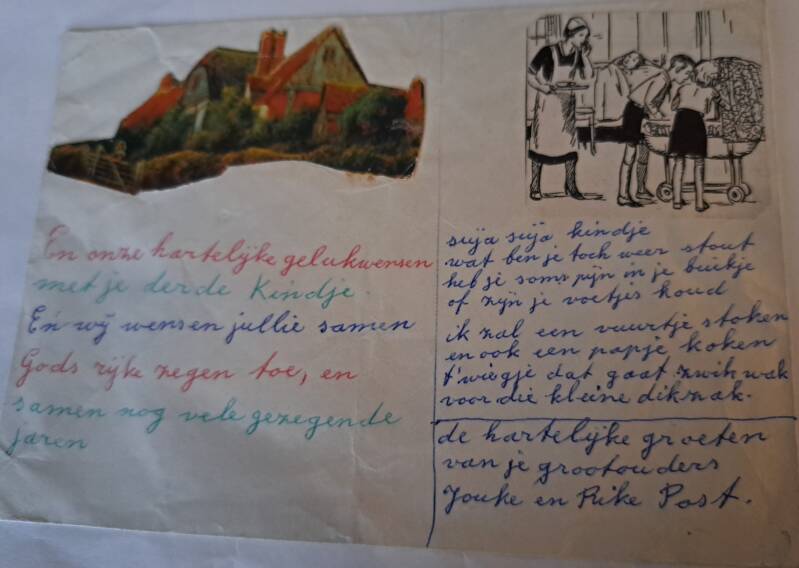 En onze hartelijke gelukwensen
met je derde Kindje.
Eń wij wensen jullie samen
Gods rijke zegen toe, en
samen nog vele gezegende
jaren
suja suja kindje
wat ben je toch weer stout
heb je soms pijn in je buikje
of zijn je voetjes koud
ik zal een vuurtje stoken
en ook een papje koken
t'wiegje dat gaat zwik wak
voor die kleine dikzak.
de hartelijke groeten
van je grootouders
Jouke en Rike Post.